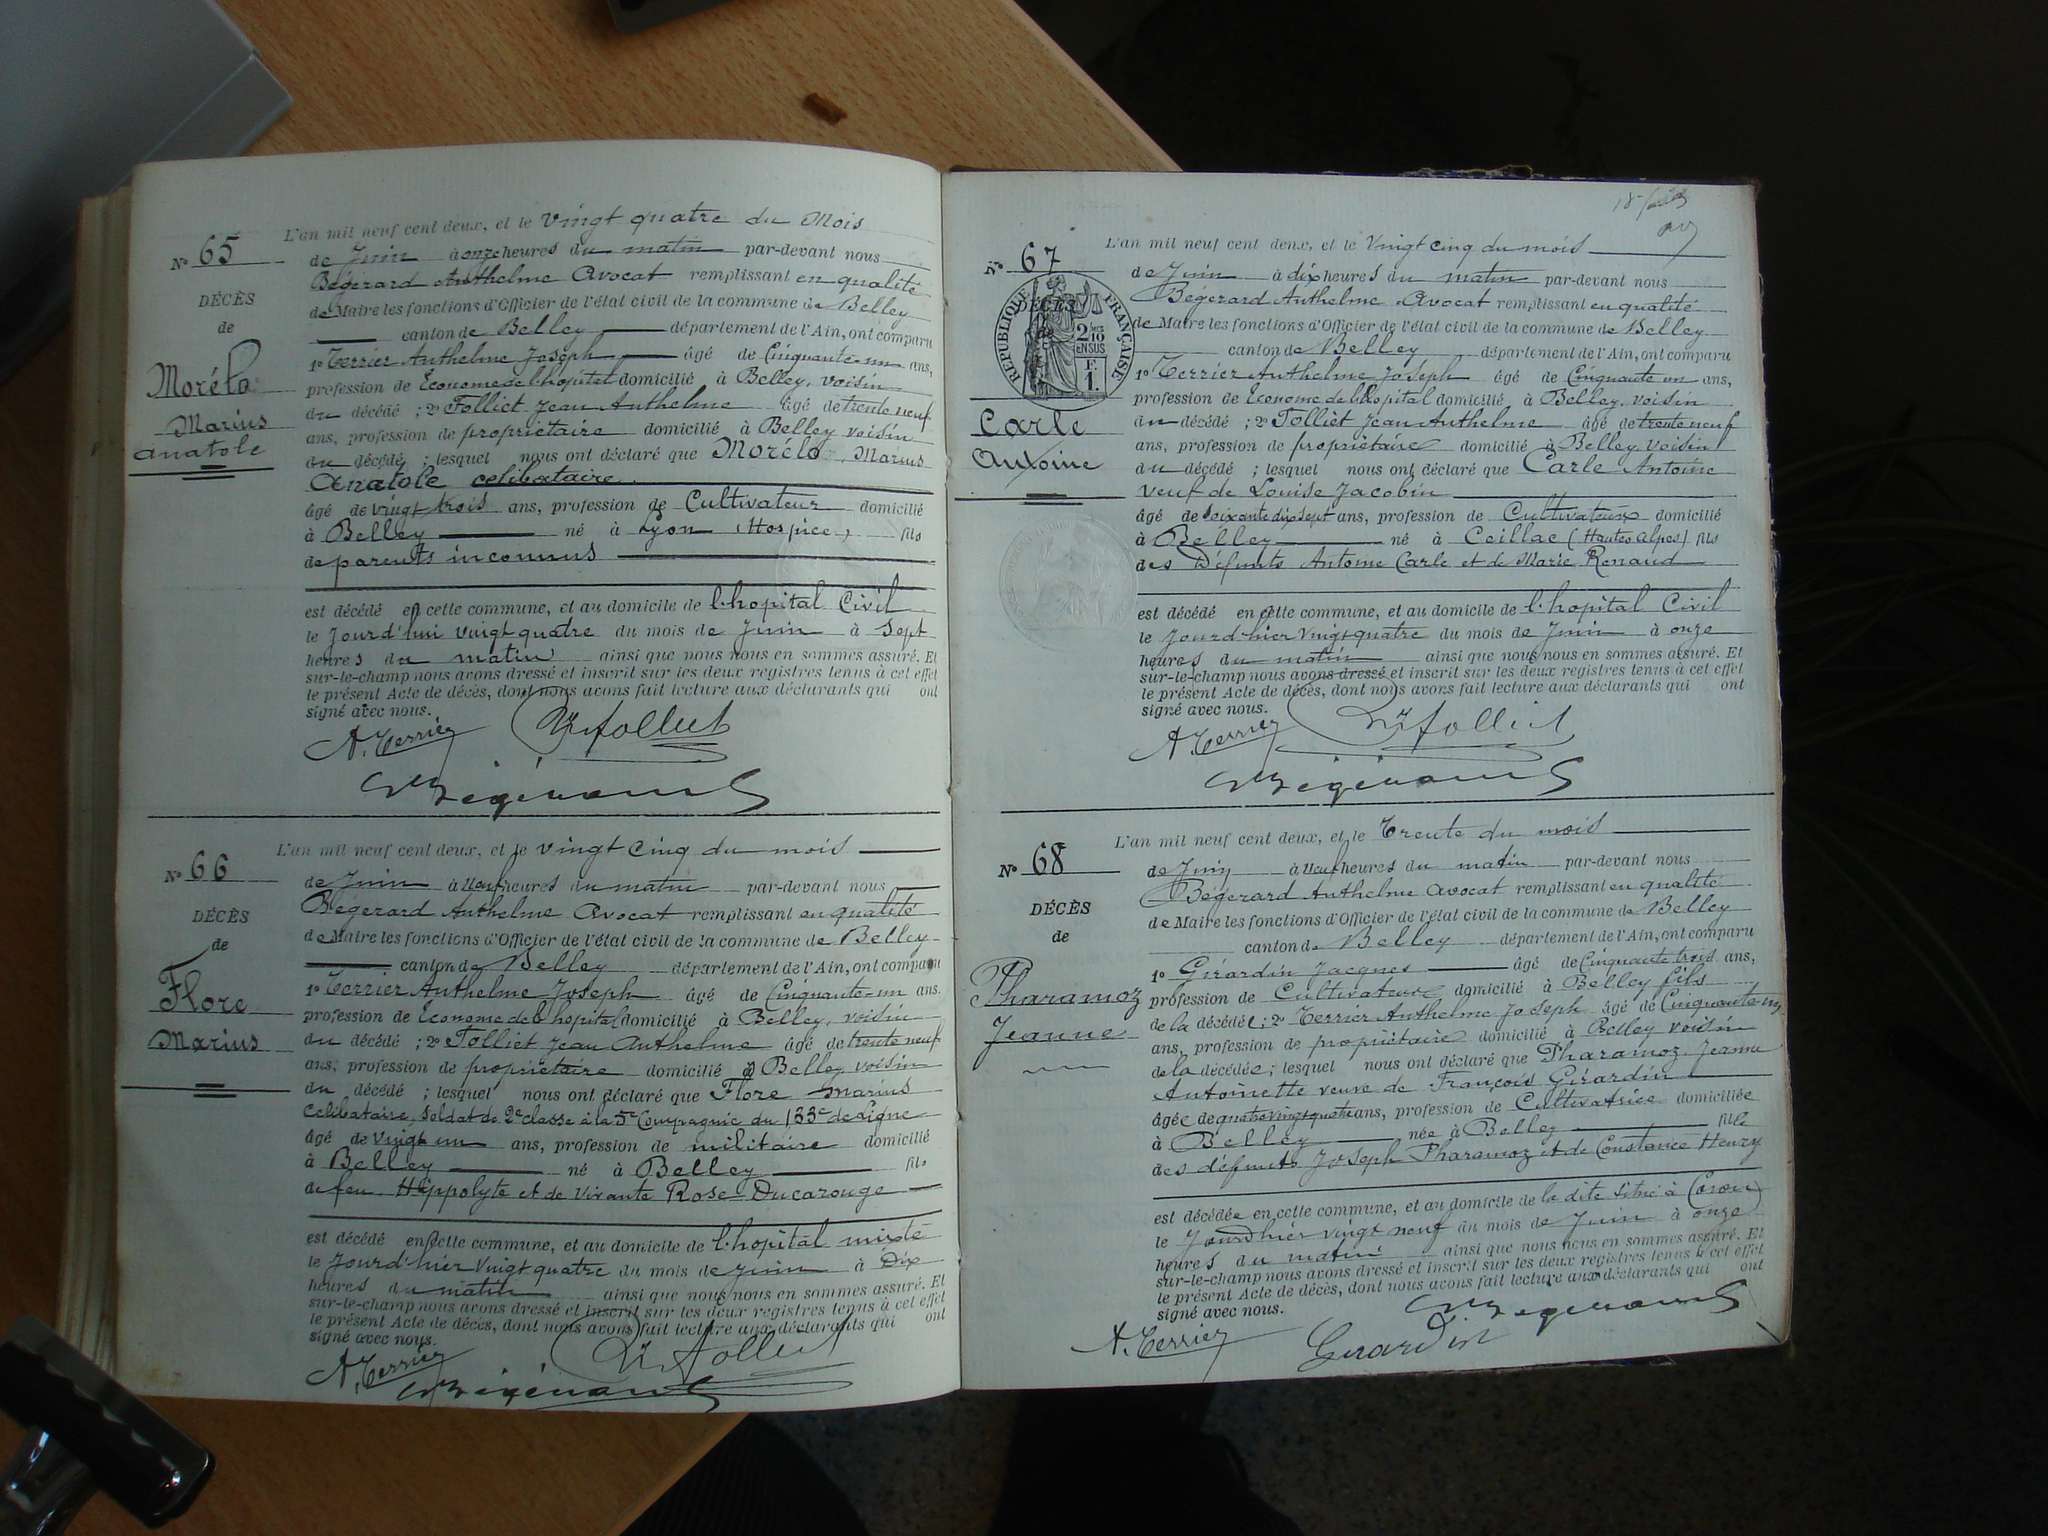 L'an mil neuf cent deux, et le vingt quatre du Mois
No 65
de Juin à onze heures du matin par-devant nous
Bégerard Anthelme Avocat remplissant en qualité
DÉCÈS
de Maire les fonctions d'Officier de l'état civil de la commune de Belley
de
canton de Belley département de l'Ain, ont comparu
Morélo
Marius
Anatole
1o Terrier Anthelme Joseph âgé de Cinquante-un ans,
profession de Econome de l'hopital domicilié à Belley, voisin
du décédé ; 2o Folliet Jean Anthelme âgé de trente neuf
ans, profession de propriétaire domicilié à Belley voisin
du décédé ; lesquel nous ont déclaré que Morélo Marius
Anatole celibataire
âgé de vingt trois ans, profession de Cultivateur domicilié
à Belley né à Lyon (Hospice) fils
de parents inconnus
est décédé en cette commune, et au domicile de l'hopital Civil
le Jourd'hui vingt quatre du mois de Juin à Sept
heures du matin ainsi que nous nous en sommes assuré. Et
sur-le-champ nous avons dressé et inscrit sur les deux registres tenus à cet effet
le présent Acte de décès, dont nous avons fait lecture aux déclarants qui ont
signé avec nous.
A. Terrier Folliet
Bégerard
L'an mil neuf cent deux, et le vingt cinq du mois
No 66
de Juin à Neuf heures du matin par-devant nous
Bégerard Anthelme Avocat remplissant en qualité
DÉCÈS
de Maire les fonctions d'Officier de l'état civil de la commune de Belley
de
canton de Belley département de l'Ain, ont comparu
Flore
Marius
1o Terrier Anthelme Joseph âgé de Cinquante-un ans.
profession de Econome de l'hopital domicilié à Belley, voisin
du décédé ; 2o Folliet Jean Anthelme âgé de trente neuf
ans, profession de propriétaire domicilié à Belley voisin
du décédé ; lesquel nous ont déclaré que Flore Marius
Celibataire, Soldat de 2e classe à la 5e Compagnie du 133e de Ligne
âgé de vingt un ans, profession de militaire domicilié
à Belley né à Belley fils
de feu Hippolyte et de vivante Rose Ducarouge
est décédé en cette commune, et au domicile de l'hopital mixte
le Jourd'hier vingt quatre du mois de Juin à Dix
heures du matin ainsi que nous nous en sommes assuré. Et
sur-le-champ nous avons dressé et inscrit sur les deux registres tenus à cet effet
le présent Acte de décès, dont nous avons fait lecture aux déclarants qui ont
signé avec nous.
A. Terrier Folliet
Bégerard
L'an mil neuf cent deux, et le Vingt cinq du mois
No 67
de Juin à dix heures du matin par-devant nous
Bégerard Anthelme Avocat remplissant en qualité
DÉCÈS
de
RÉPUBLIQUE FRANÇAISE
2/10
EN SUS
F.
1.
de Maire les fonctions d'Officier de l'état civil de la commune de Belley
canton de Belley département de l'Ain, ont comparu
Carle
Antoine
1o Terrier Anthelme Joseph âgé de Cinquante un ans,
profession de Econome de l'hopital domicilié à Belley, voisin
du décédé ; 2o Folliet Jean Anthelme âgé de trente neuf
ans, profession de propriétaire domicilié à Belley voisin
du décédé ; lesquel nous ont déclaré que Carle Antoine
veuf de Louise Jacobin
âgé de Soixante dix sept ans, profession de Cultivateur domicilié
à Belley né à Ceillac (Hautes Alpes) fils
des Défunts Antoine Carle et de Marie Renaud
est décédé en cette commune, et au domicile de l'hopital Civil
le Jourd'hier vingt quatre du mois de Juin à onze
heures du matin ainsi que nous nous en sommes assuré. Et
sur-le-champ nous avons dressé et inscrit sur les deux registres tenus à cet effet
le présent Acte de décès, dont nous avons fait lecture aux déclarants qui ont
signé avec nous.
A. Terrier Folliet
Bégerard
L'an mil neuf cent deux, et le Trente du mois
No 68
de Juin à Neuf heures du matin par-devant nous
Bégerard Anthelme Avocat remplissant en qualité
DÉCÈS
de Maire les fonctions d'Officier de l'état civil de la commune de Belley
de
canton de Belley département de l'Ain, ont comparu
Pharamoz
Jeanne
1o Girardin Jacques âgé de Cinquante trois ans,
profession de Cultivateur domicilié à Belley fils
de la décédée ; 2o Terrier Anthelme Joseph âgé de Cinquante-un
ans, profession de propriétaire domicilié à Belley voisin
de la décédée ; lesquel nous ont déclaré que Pharamoz Jeanne
Antoinette veuve de François Girardin
âgée de quatre vingt quatre ans, profession de Cultivatrice domiciliée
à Belley née à Belley fille
des défunts Joseph Pharamoz et de Constance Henry
est décédée en cette commune, et au domicile de la dite situé à Coron
le Jourd'hier vingt neuf du mois de Juin à onze
heures du matin ainsi que nous nous en sommes assuré. Et
sur-le-champ nous avons dressé et inscrit sur les deux registres tenus à cet effet
le présent Acte de décès, dont nous avons fait lecture aux déclarants qui ont
signé avec nous.
Bégerard
A. Terrier Girardin